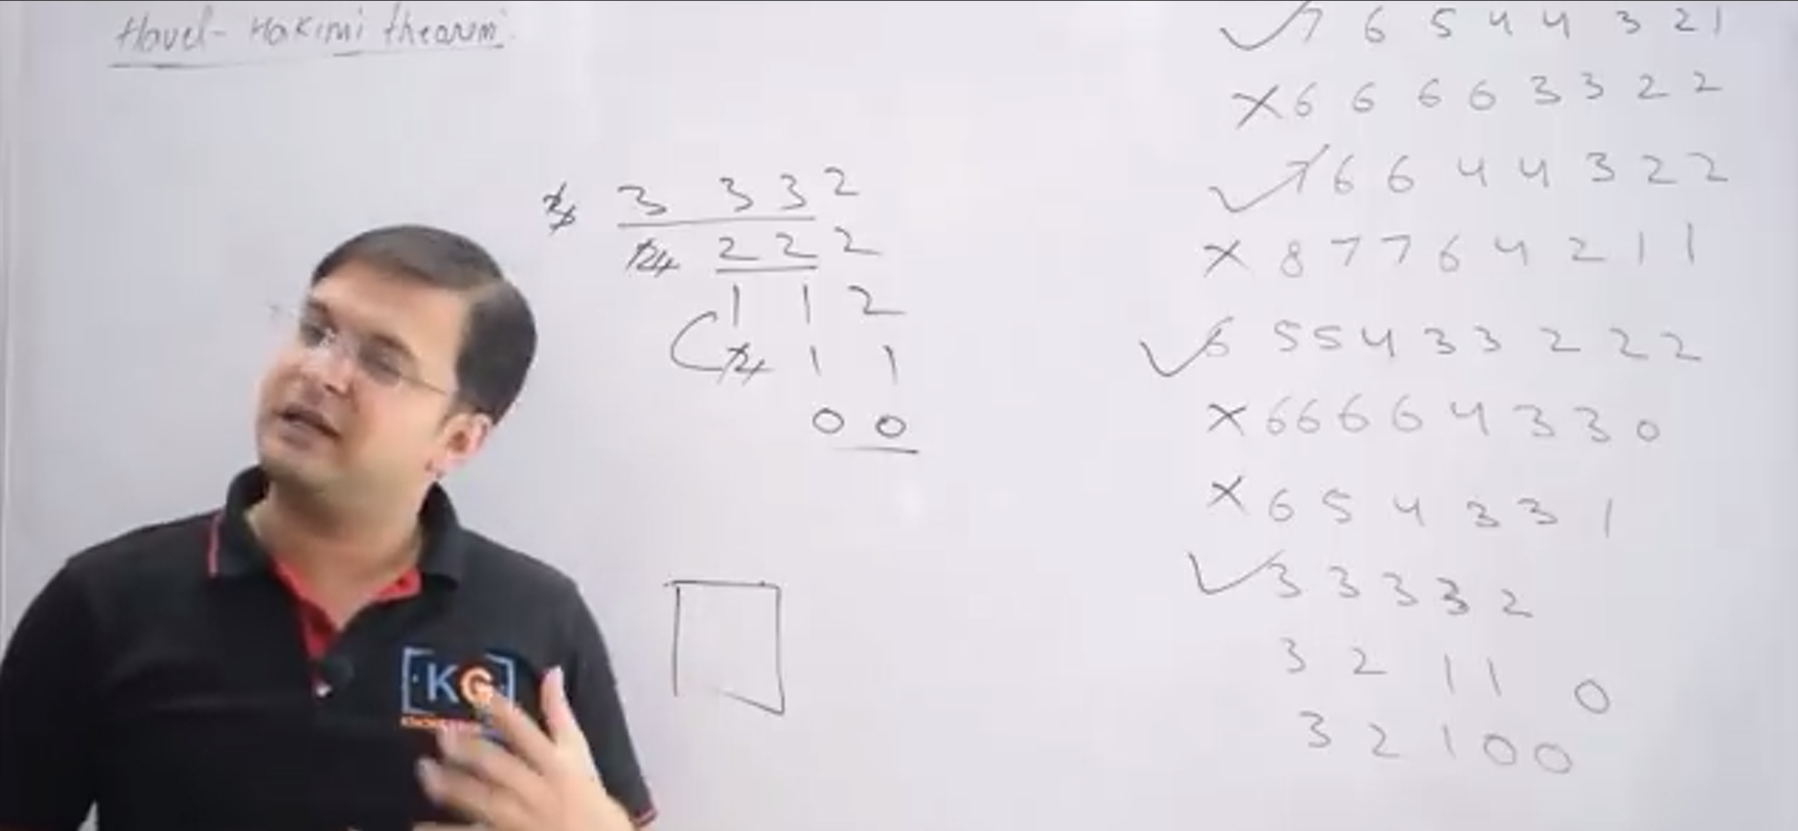 Havel-Hakimi theorem:
3 3 3 2
2 2 2
1 1 2
1 1
0 0
7 6 5 4 4 3 2 1
X 6 6 6 6 3 3 2 2
7 6 6 4 4 3 2 2
X 8 7 7 6 4 2 1 1
6 5 5 4 3 3 2 2 2
X 6 6 6 6 4 3 3 0
X 6 5 4 3 3 1
3 3 3 3 2
3 2 1 1 0
3 2 1 0 0
KG